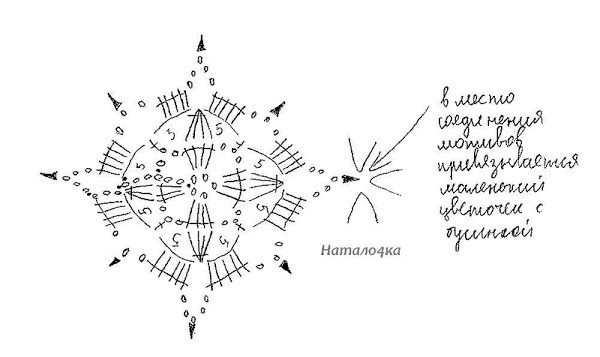 в место
соединения
мотивов
привязывается
маленький
цветочек с
бусинкой
5 5
5 5
5 5
5 5
Натало4ка